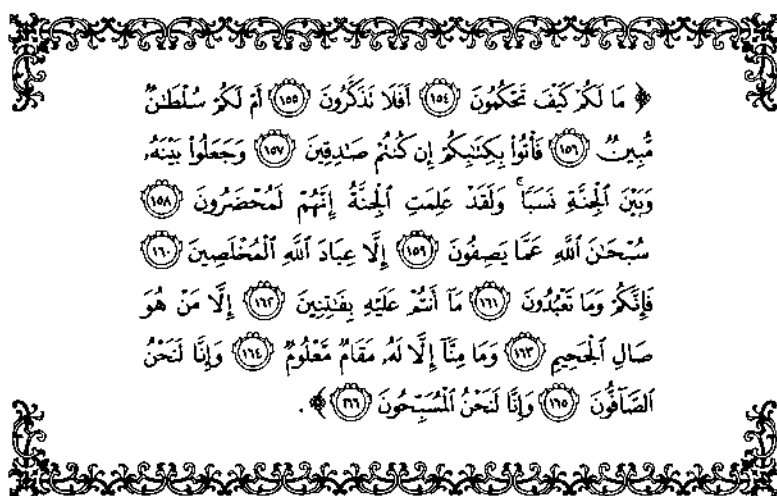 ﴿ مَا لَكُمْ كَيْفَ تَحْكُمُونَ ﴿١٥٤﴾ أَفَلَا تَذَكَّرُونَ ﴿١٥٥﴾ أَمْ لَكُمْ سُلْطَـٰنٌ
مُّبِينٌ ﴿١٥٦﴾ فَأْتُوا۟ بِكِتَـٰبِكُمْ إِن كُنتُمْ صَـٰدِقِينَ ﴿١٥٧﴾ وَجَعَلُوا۟ بَيْنَهُۥ
وَبَيْنَ ٱلْجِنَّةِ نَسَبًا ۚ وَلَقَدْ عَلِمَتِ ٱلْجِنَّةُ إِنَّهُمْ لَمُحْضَرُونَ ﴿١٥٨﴾
سُبْحَـٰنَ ٱللَّهِ عَمَّا يَصِفُونَ ﴿١٥٩﴾ إِلَّا عِبَادَ ٱللَّهِ ٱلْمُخْلَصِينَ ﴿١٦٠﴾
فَإِنَّكُمْ وَمَا تَعْبُدُونَ ﴿١٦١﴾ مَآ أَنتُمْ عَلَيْهِ بِفَـٰتِنِينَ ﴿١٦٢﴾ إِلَّا مَنْ هُوَ
صَالِ ٱلْجَحِيمِ ﴿١٦٣﴾ وَمَا مِنَّآ إِلَّا لَهُۥ مَقَامٌ مَّعْلُومٌ ﴿١٦٤﴾ وَإِنَّا لَنَحْنُ
ٱلصَّآفُّونَ ﴿١٦٥﴾ وَإِنَّا لَنَحْنُ ٱلْمُسَبِّحُونَ ﴿١٦٦﴾ ﴾ .